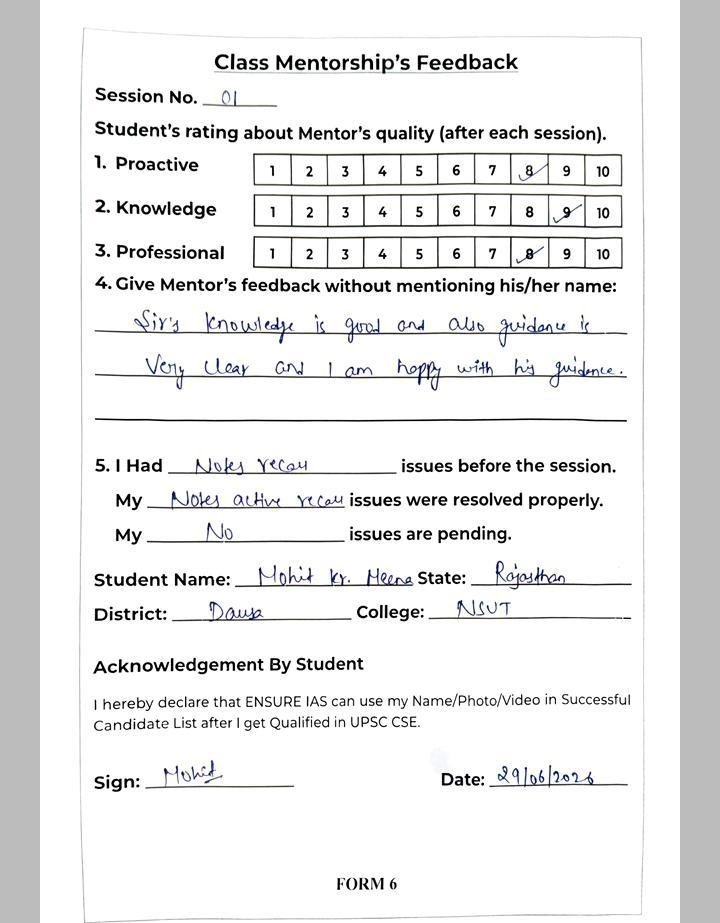 Class Mentorship's Feedback
Session No. 01
Student's rating about Mentor's quality (after each session).
1. Proactive 1 2 3 4 5 6 7 8 9 10
2. Knowledge 1 2 3 4 5 6 7 8 9 10
3. Professional 1 2 3 4 5 6 7 8 9 10
4. Give Mentor's feedback without mentioning his/her name:
Sir's knowledge is good and also guidance is
Very clear and I am happy with his guidance.
5. I Had Notes recall issues before the session.
My Notes active recall issues were resolved properly.
My No issues are pending.
Student Name: Mohit kr. Meena State: Rajasthan
District: Dausa College: NSUT
Acknowledgement By Student
I hereby declare that ENSURE IAS can use my Name/Photo/Video in Successful
Candidate List after I get Qualified in UPSC CSE.
Sign: Mohit Date: 29/06/2026
FORM 6